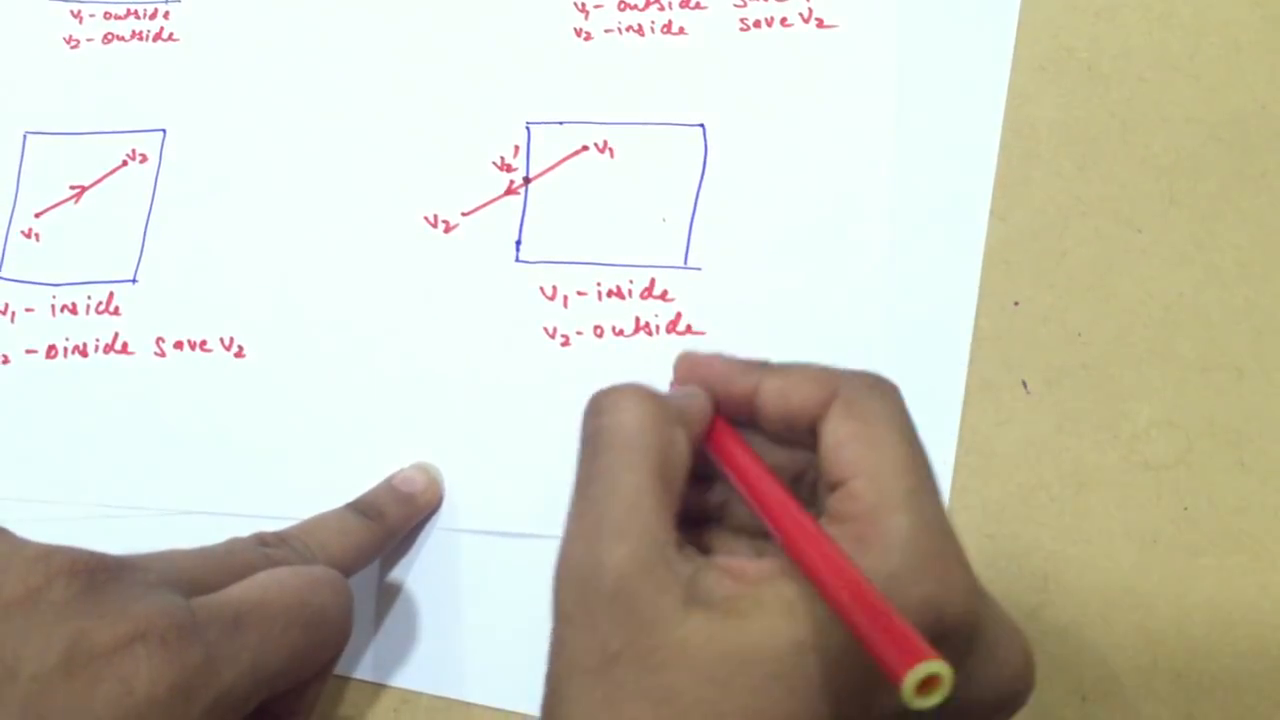 v1 - outside
v2 - outside
v1 - outside
v2 - inside save v2
v2
v1
v1 - inside
2 - oinside save v2
v2'
v1
v2
v1 - inside
v2 - outside